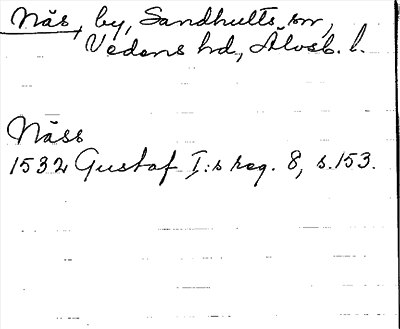 Näs, by, Sandhults sn,
Vedens hd, Älvsb. l.
Näss
1532 Gustaf I:s reg. 8, s. 153.